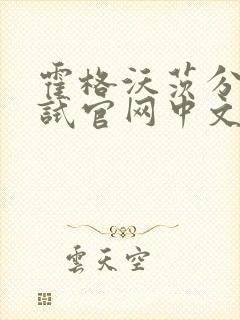 霍格沃茨分
试官网中文
雲天空